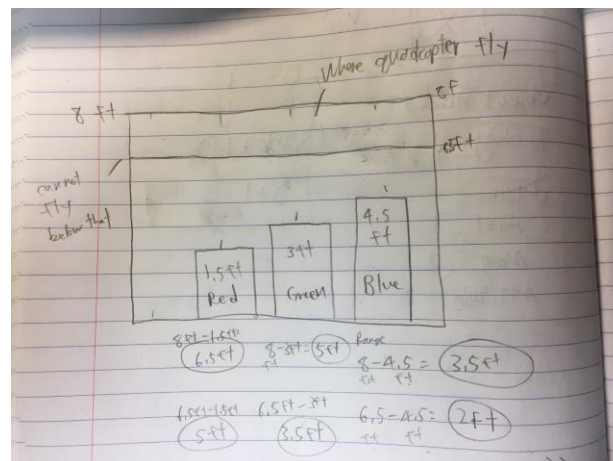 Where quadcopter fly
8 ft
8f
cannot
fly
below that
4.5
ft
Blue
3ft
Green
1.5ft
Red
8ft-1.5ft=
6.5ft
8-3ft=5ft
ft
Range
8-4.5=3.5ft
ft ft
6.5ft-1.5ft
5ft
6.5ft-3ft
3.5ft
6.5-4.5=2ft
ft ft